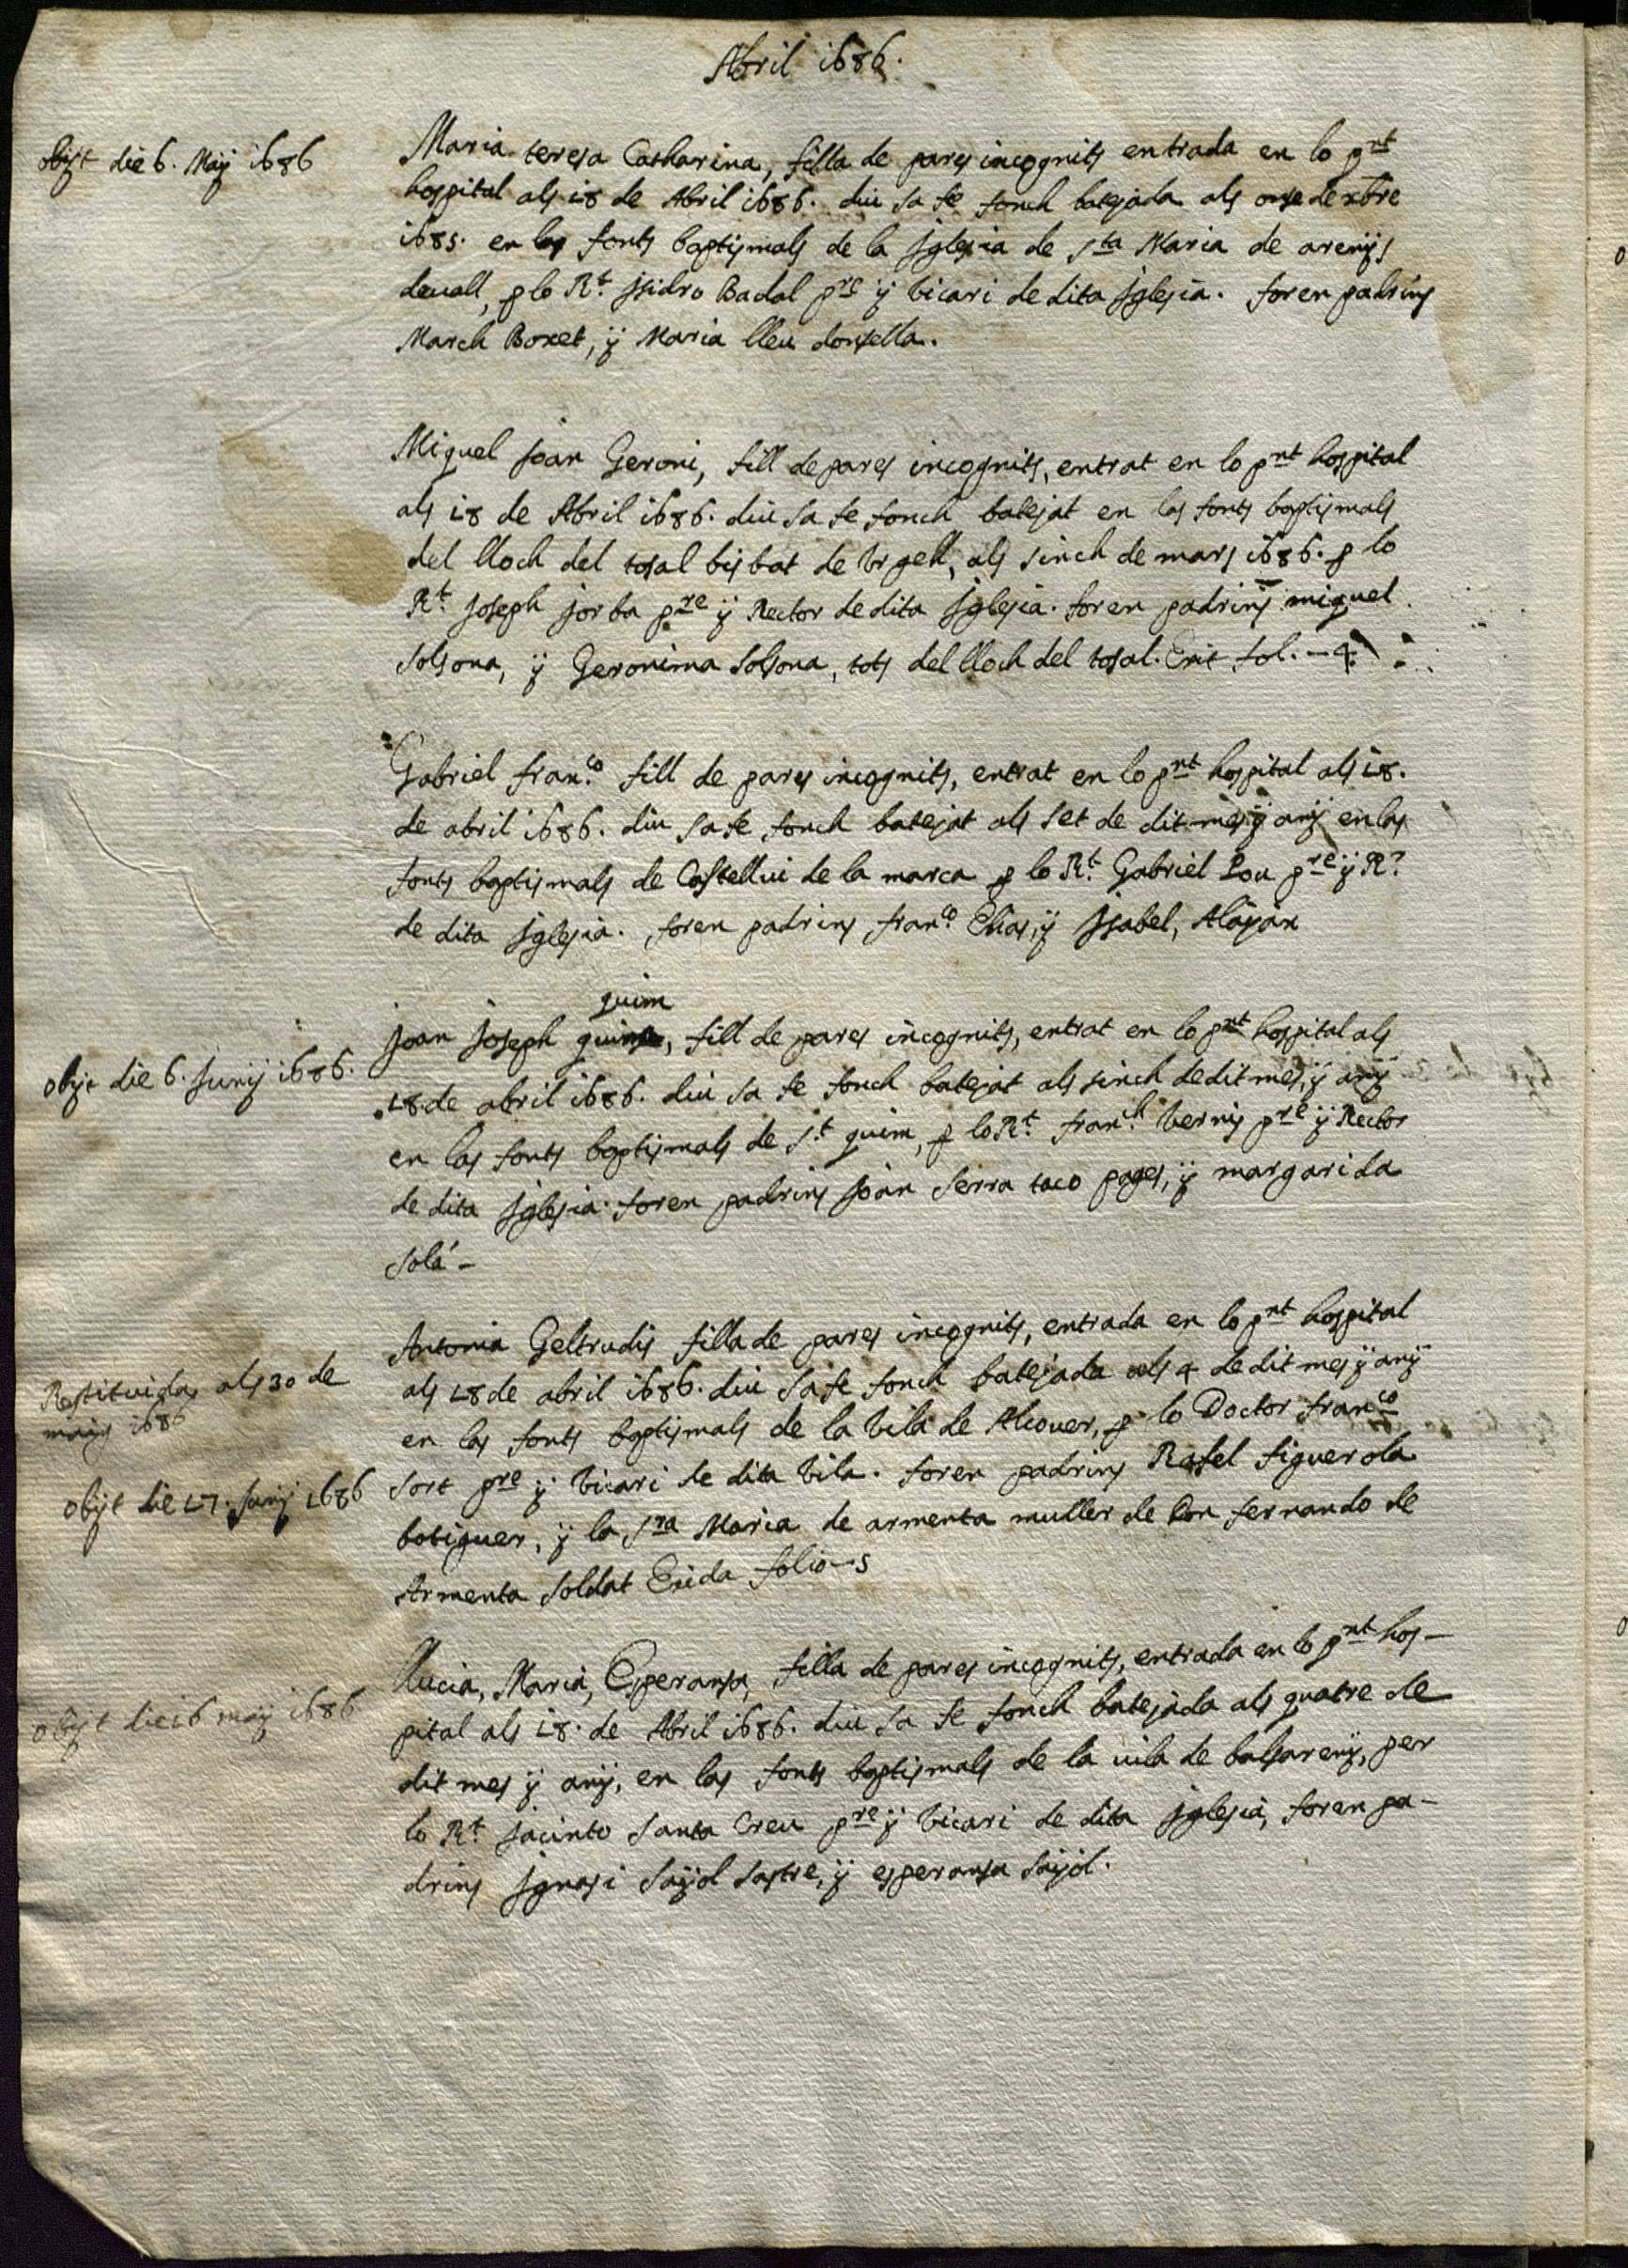 Abril 1686.
obijt die 6. Maij 1686
Maria teresa Catharina, filla de pares incognits entrada en lo pnt
hospital als 18 de Abril 1686. diu sa fe fonch batejada als onse de xbre
1685. en las fonts baptismals de la Iglesia de sta Maria de arenijs
deuall, p lo Rt. Isidro Badal pre ÿ Vicari de dita Iglesia. foren padrins
March Boxet, ÿ Maria lleu donsella.
Miquel Joan Geroni, fill de pares incognits, entrat en lo pnt hospital
als 18 de Abril 1686. diu sa fe fonch batejat en las fonts baptismals
del lloch del tosal bisbat de Vrgell, als sinch de mars 1686. p lo
Rt. Joseph jorba pre ÿ Rector de dita Iglesia. foren padrins miquel
Solsona, ÿ Geronima Solsona, tots del lloch del tosal. Exit fol. - 4
Gabriel franco. fill de pares incognits, entrat en lo pnt hospital als 18.
de abril 1686. diu sa fe fonch batejat als set de dit mes ÿ anÿ en las
fonts baptismals de Castellui de la marca p lo Rt. Gabriel Pou pre ÿ Rr.
de dita Iglesia. foren padrins franco. Elias, ÿ Isabel, Alayan
quim
obijt die 6. Junij 1686.
Joan Joseph quim, fill de pares incognits, entrat en lo pnt hospital als
18 de abril 1686. diu sa fe fonch batejat als sinch de dit mes, ÿ anÿ
en las fonts baptismals de st. quim, p lo Rt. franch. Vernis pre ÿ Rector
de dita Iglesia. foren padrins Joan Serra taco pages, ÿ margarida
Solá -
Antonia Geltrudis filla de pares incognits, entrada en lo pnt hospital
Restituida als 30 de
maig 1686
als 18 de abril 1686. diu sa fe fonch batejada als 4 de dit mes ÿ anÿ
en las fonts baptismals de la Vila de Alcouer, p lo Doctor franco
obijt die 17. Junij 1686
Sort pre ÿ Vicari de dita Vila. foren padrins Rafel figuerola
botiguer, ÿ la sra Maria de armenta muller de Don fernando de
Armenta Soldat Exida folio - 5
obijt die 16 maij 1686
Llucia, Maria, Esperansa, filla de pares incognits, entrada en lo pnt hos-
pital als 18. de Abril 1686. diu sa fe fonch batejada als quatre de
dit mes ÿ anÿ, en las fonts baptismals de la uila de balsarenÿ, per
lo Rt. Jacinto Santa Creu pre ÿ Vicari de dita Iglesia, foren pa-
drins Ignasi Saÿol sastre, ÿ esperansa Saÿol.